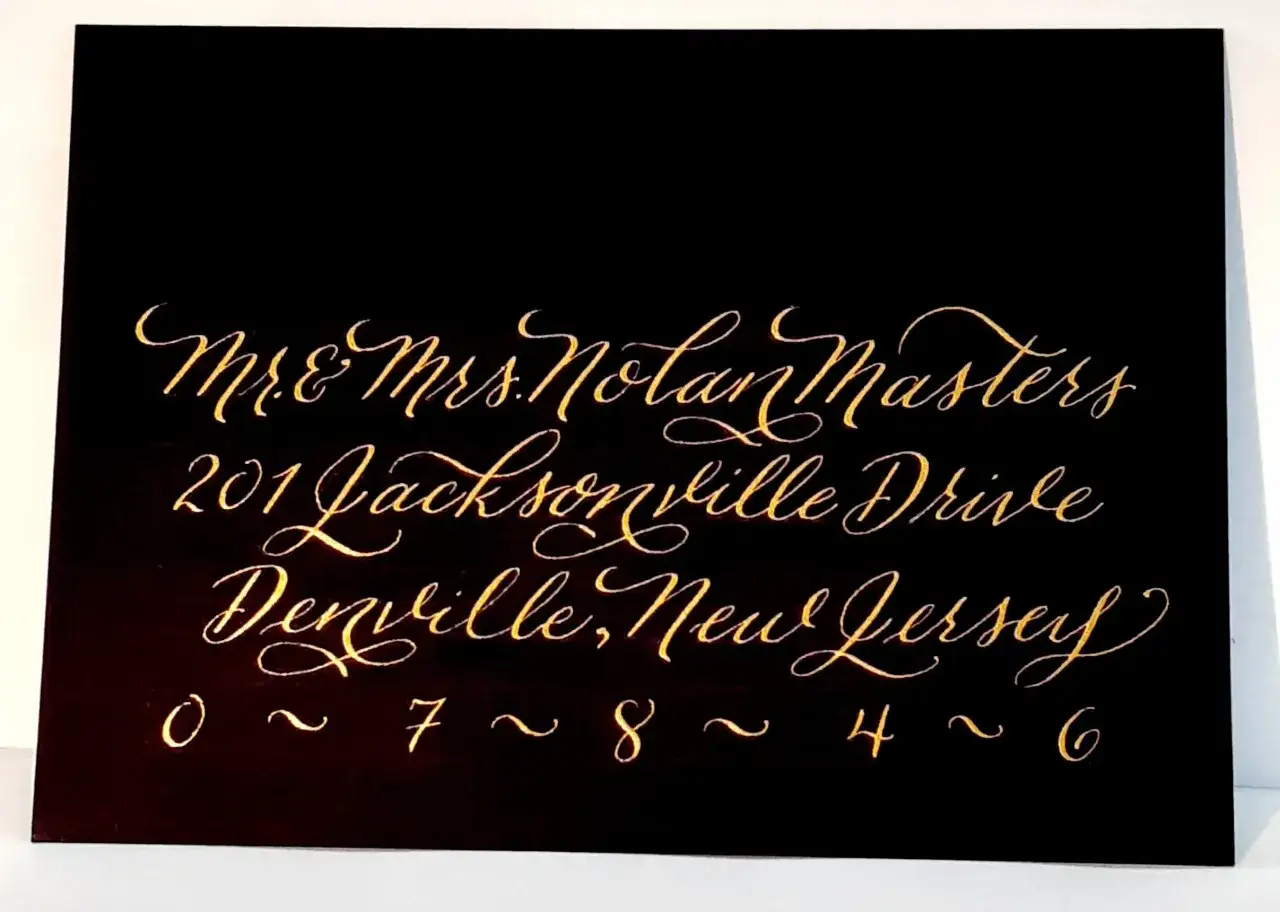 Mr. & Mrs. Nolan Masters
201 Jacksonville Drive
Denville, New Jersey
0 ~ 7 ~ 8 ~ 4 ~ 6